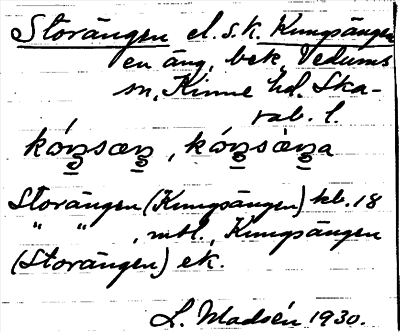 Storängen el. s.k. Kungsängen
en äng, bek. Vedums
sn, Kinne hd. Ska-
rab. l.
kóŋsæŋ, kóŋsàŋa
Storängen (Kungsängen) kb. 18
" " , mtl., Kungsängen
(Storängen) ek.
L. Madsén 1930.